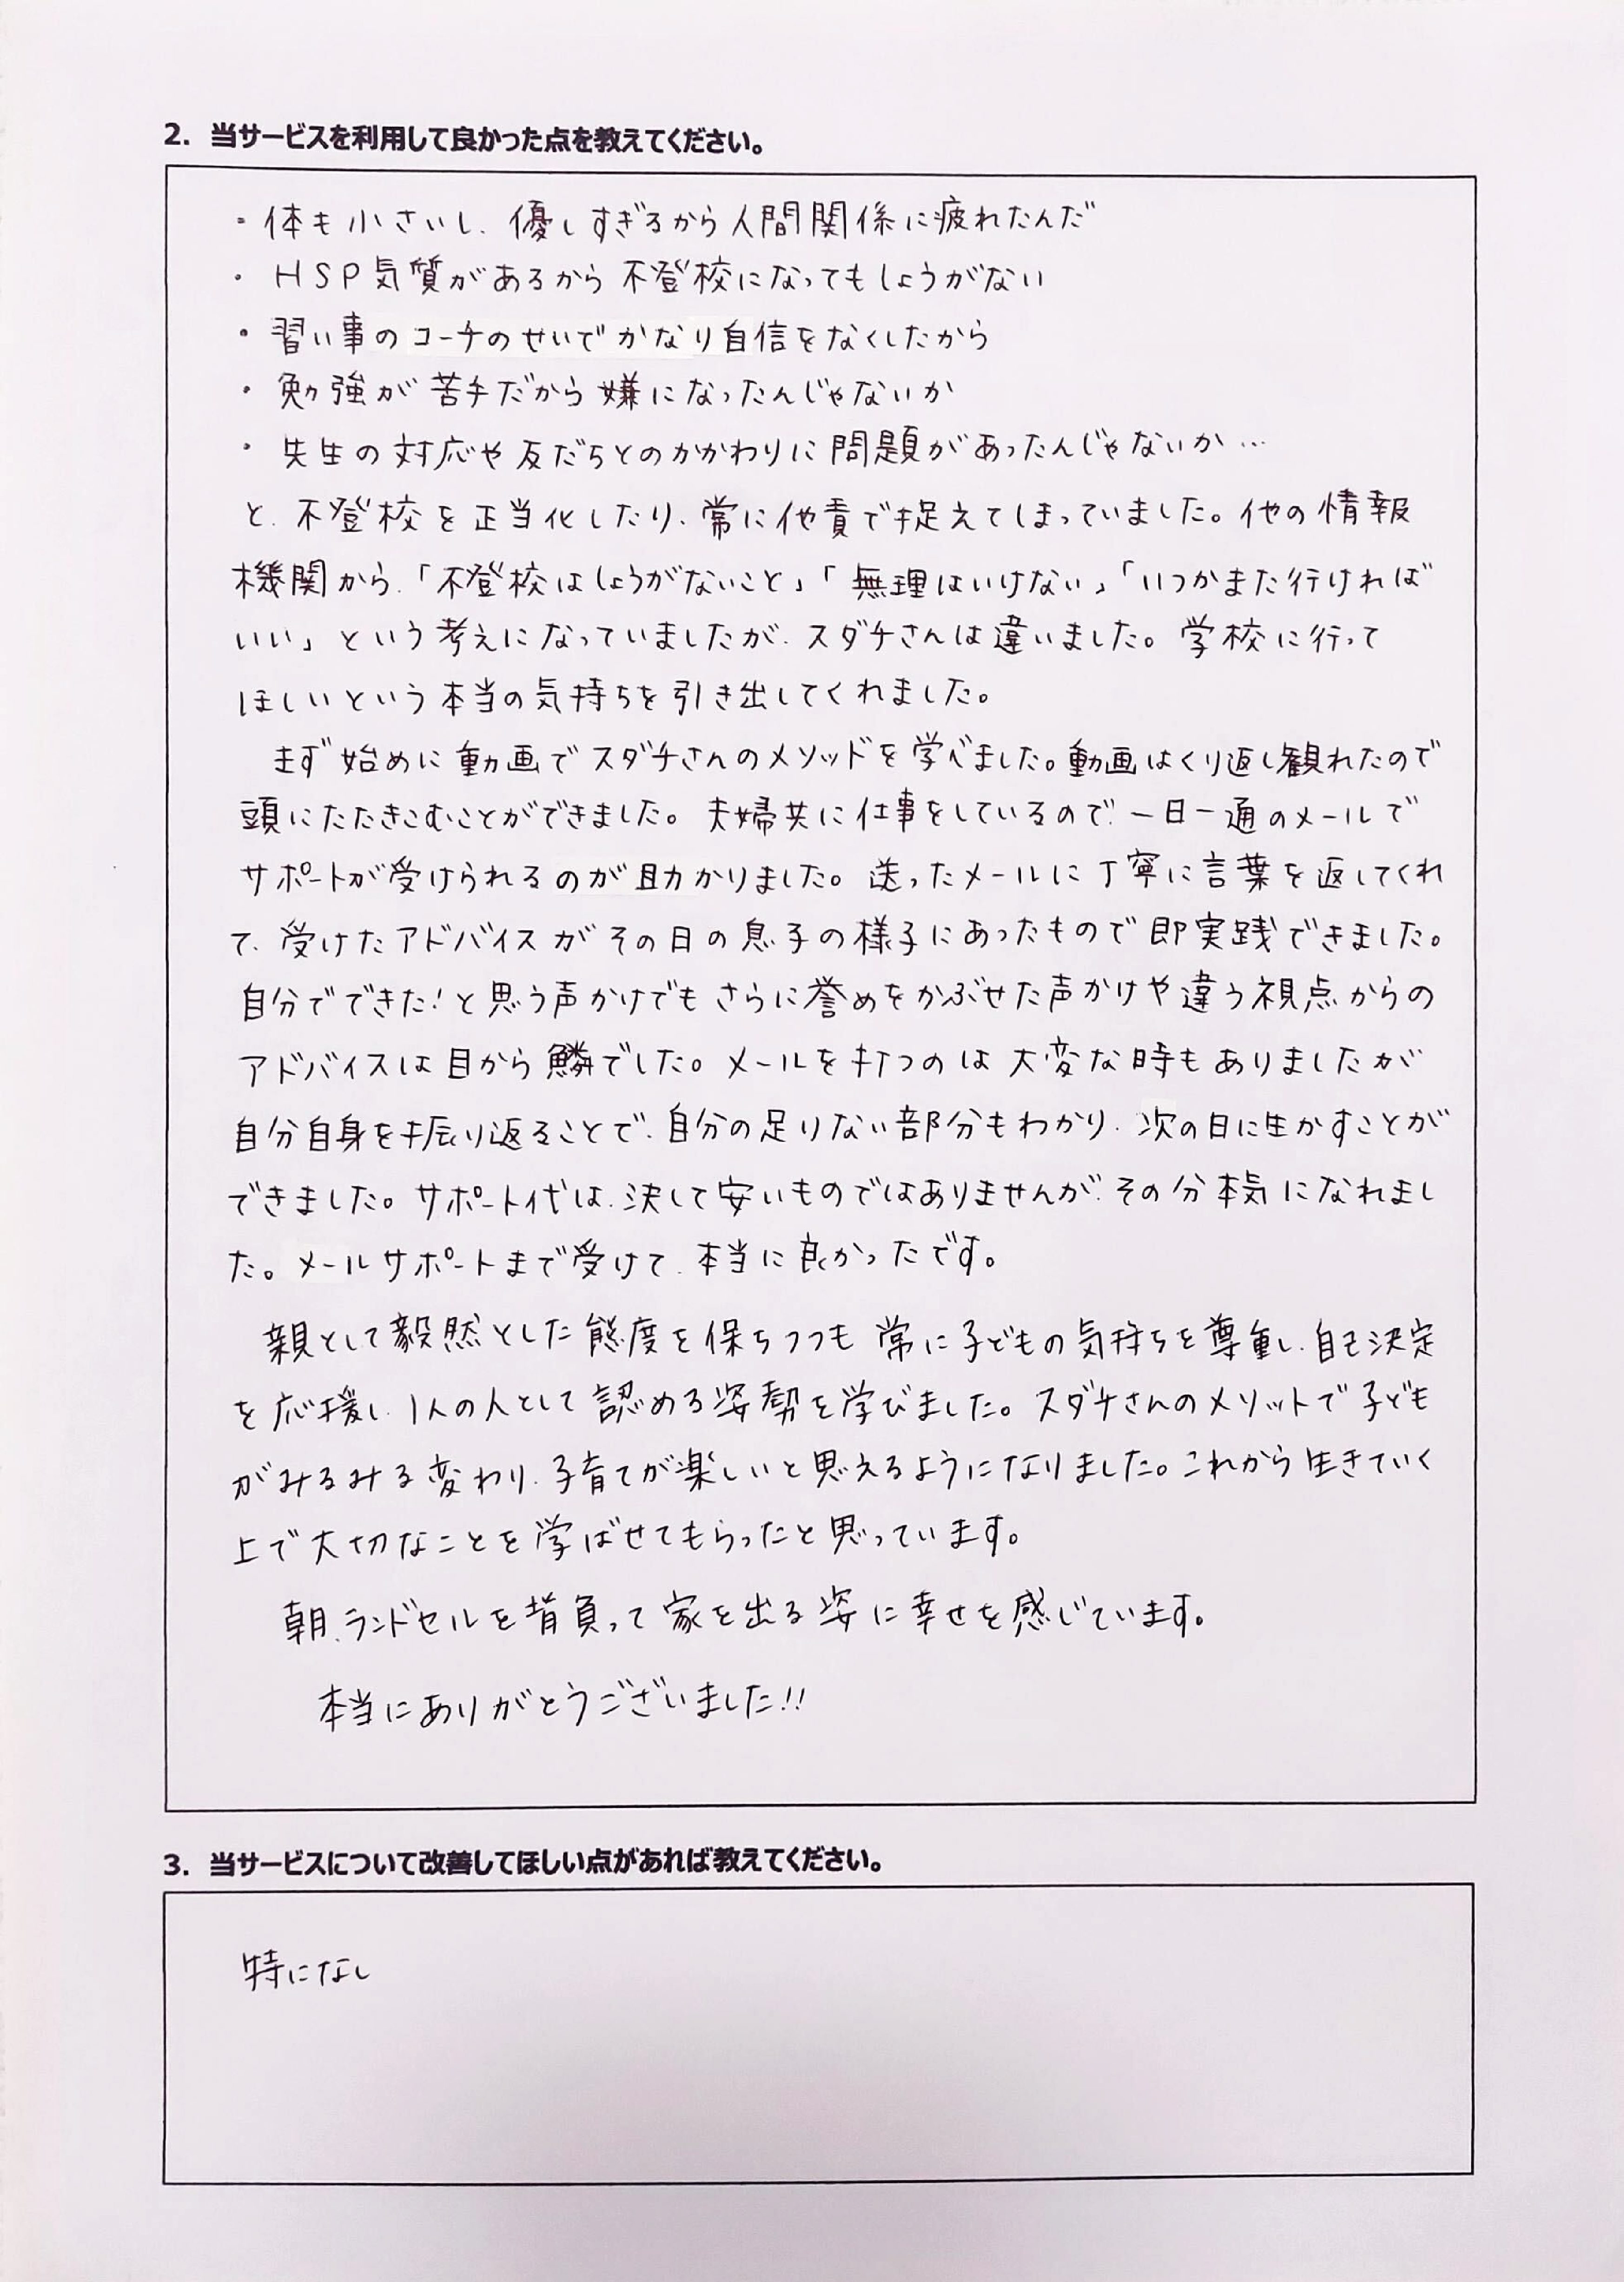 2. 当サービスを利用して良かった点を教えてください。
・体も小さいし、優しすぎるから人間関係に疲れたんだ
・HSP気質があるから不登校になってもしょうがない
・習い事のコーチのせいでかなり自信をなくしたから
・勉強が苦手だから嫌になったんじゃないか
・先生の対応や友だちとのかかわりに問題があったんじゃないか…
と、不登校を正当化したり、常に他責で捉えてしまっていました。他の情報
機関から、「不登校はしょうがないこと」「無理はいけない」「いつかまた行ければ
いい」という考えになっていましたが、スダチさんは違いました。学校に行って
ほしいという本当の気持ちを引き出してくれました。
まず始めに動画でスダチさんのメソッドを学べました。動画はくり返し観れたので
頭にたたきこむことができました。夫婦共に仕事をしているので、一日一通のメールで
サポートが受けられるのが助かりました。送ったメールに丁寧に言葉を返してくれ
て、受けたアドバイスがその日の息子の様子にあったもので即実践できました。
自分でできた!と思う声かけでもさらに誉めをかぶせた声かけや違う視点からの
アドバイスは目から鱗でした。メールを打つのは大変な時もありましたが
自分自身を振り返ることで、自分の足りない部分もわかり、次の日に生かすことが
できました。サポート代は、決して安いものではありませんが、その分本気になれまし
た。メールサポートまで受けて、本当に良かったです。
親として毅然とした態度を保ちつつも常に子どもの気持ちを尊重し、自己決定
を応援し、1人の人として認める姿勢を学びました。スダチさんのメソットで子ども
がみるみる変わり、子育てが楽しいと思えるようになりました。これから生きていく
上で大切なことを学ばせてもらったと思っています。
朝、ランドセルを背負って家を出る姿に幸せを感じています。
本当にありがとうございました!!
3. 当サービスについて改善してほしい点があれば教えてください。
特になし